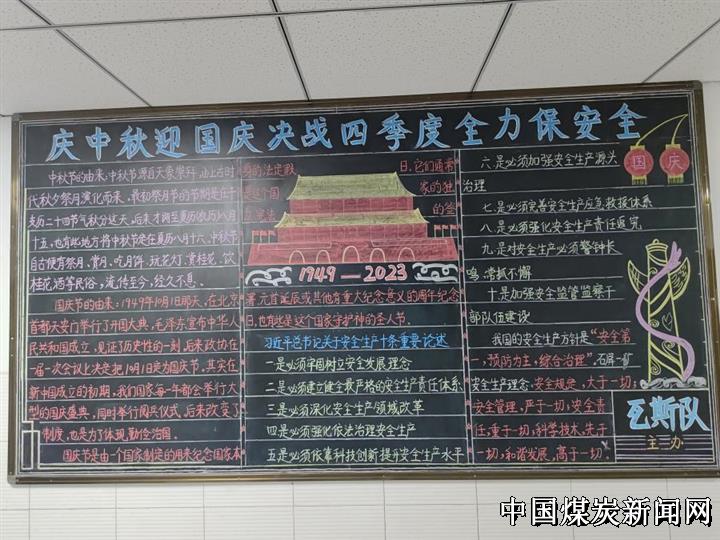 庆中秋迎国庆决战四季度全力保安全
中秋节的由来:中秋节源自天象崇拜,由上古时
代秋夕祭月演化而来。最初祭月节的节期是在干
支历二十四节气秋分这天,后来才调至夏历八月
十五,也有些地方将中秋节定在夏历八月十六。中秋节
自古便有祭月、赏月、吃月饼、玩花灯、赏桂花、饮
桂花酒等民俗,流传至今,经久不息。
国庆节的由来:1949年10月1日那天,在北京
首都天安门举行了开国大典,毛泽东宣布中华人
民共和国成立,见证了历史性的一刻,后来政协在
一届一次会议上决定把10月1日定为国庆节,其实在
新中国成立的初期,我们国家每一年都会举行大
型的国庆盛典,同时举行阅兵仪式,后来改变了
制度,也是为了体现勤俭治国。
国庆节是由一个国家制定的用来纪念国家本
身的法定假
日,它们通常
是这个国
家的独
立、宪法
的签
1949—2023
署、元首诞辰或其他有重大纪念意义的周年纪念
日,也有些是这个国家守护神的圣人节。
习近平总书记关于安全生产十条重要论述
一是必须牢固树立安全发展理念
二是必须建立健全最严格的安全生产责任体系
三是必须深化安全生产领域改革
四是必须强化依法治理安全生产
五是必须依靠科技创新提升安全生产水平
六是必须加强安全生产源头
治理
七是必须完善安全生产应急救援体系
八是必须强化安全生产责任追究
九是对安全生产必须警钟长
鸣、常抓不懈
十是加强安全监管监察干
部队伍建设
我国的安全生产方针是“安全第
一,预防为主,综合治理”石屏一矿
安全生产理念,安全规定,大于一切;
安全管理,严于一切;安全责
任,重于一切;科学技术,先于
一切;和谐发展,高于一切。
国庆
瓦斯队
主办
中国煤炭新闻网